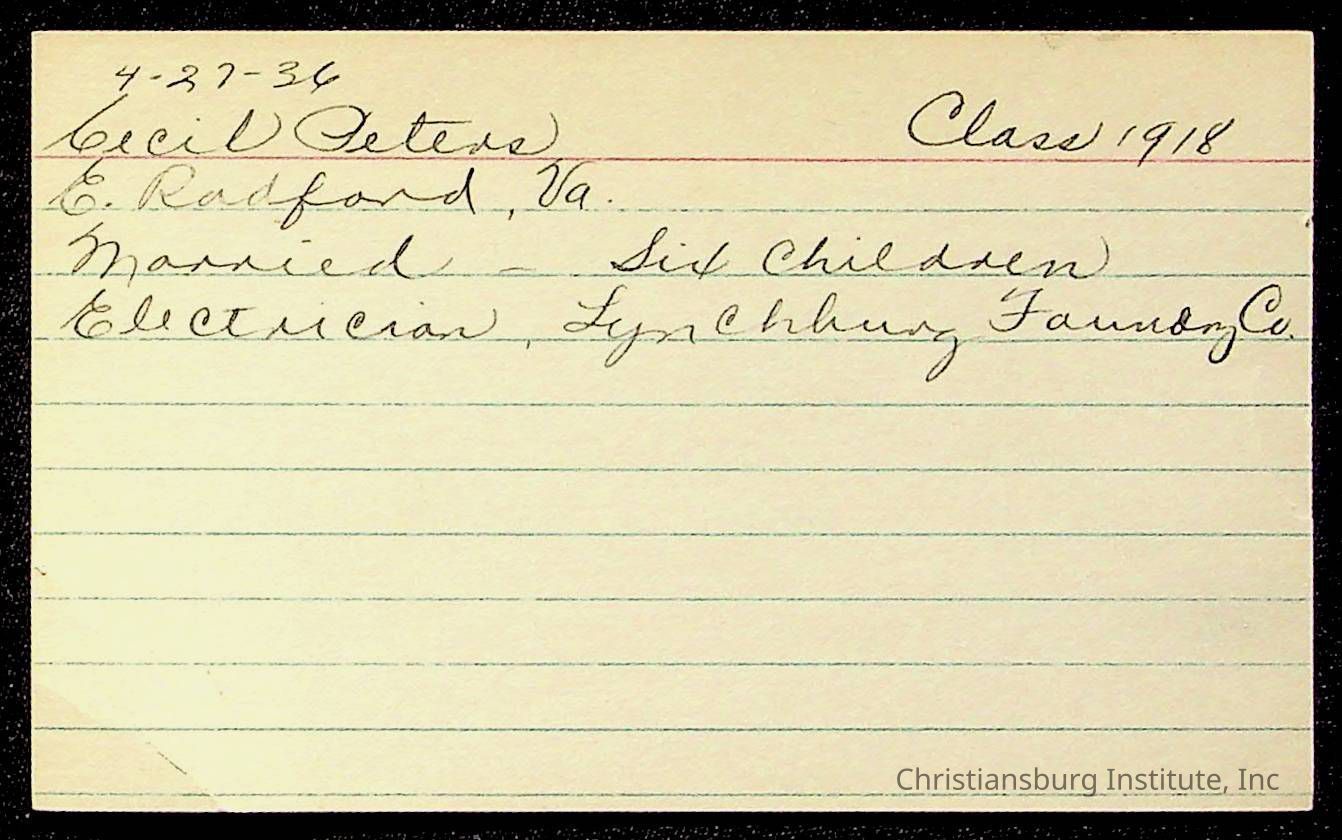 4-27-36
Cecil Peters Class 1918
E. Radford, Va.
Married - Six Children
Electrician, Lynchburg Foundry Co.
Christiansburg Institute, Inc